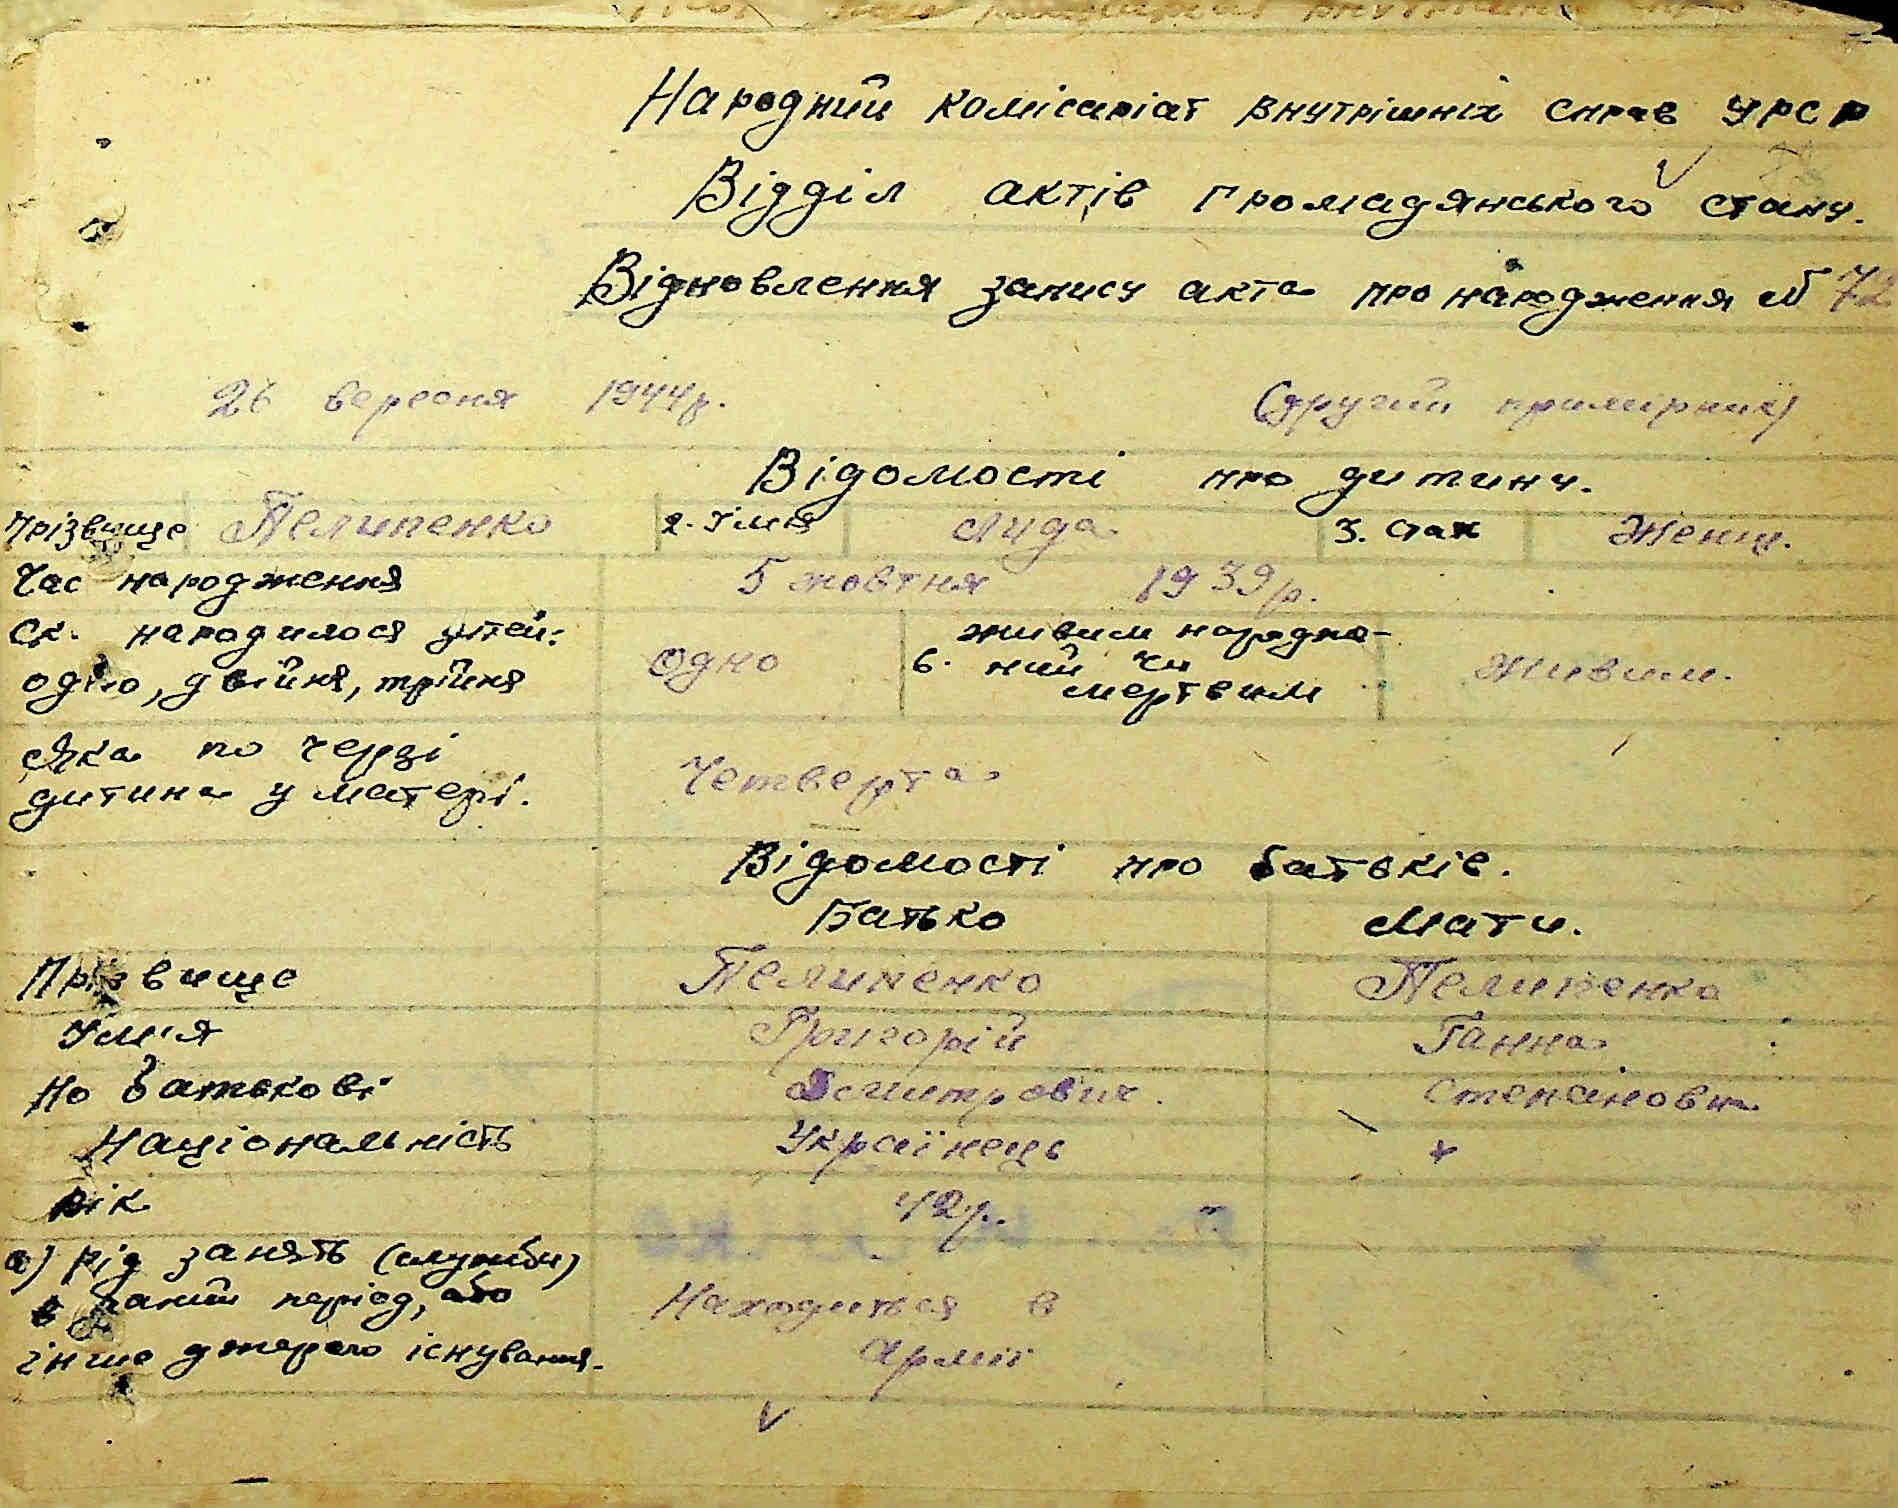 Народний комісаріат внутрішніх справ УРСР
Відділ актів громадянського стану.
Відновлення запису акта про народження № 72
26 вересня 1944р. (другий примірник)
Відомості про дитину.
Прізвище Пелипенко 2. Ім'я Лида 3. Стать Женщ.
Час народження 5 жовтня 1939р.
Ск. народилося дітей: одно, двійня, трійня Одно 6. живим народже-ний чи мертвим Живим.
Яка по черзі дитина у матері. Четверта
Відомості про батьків.
Батько Мати.
Прізвище Пелипенко Пелипенко
Ім'я Григорій Ганна
По батькові Дмитрович. Степановна
Національність Українець
Вік 42р.
а) рід занять (служби) в даний період, або інше джерело існування. Находиться в Армії